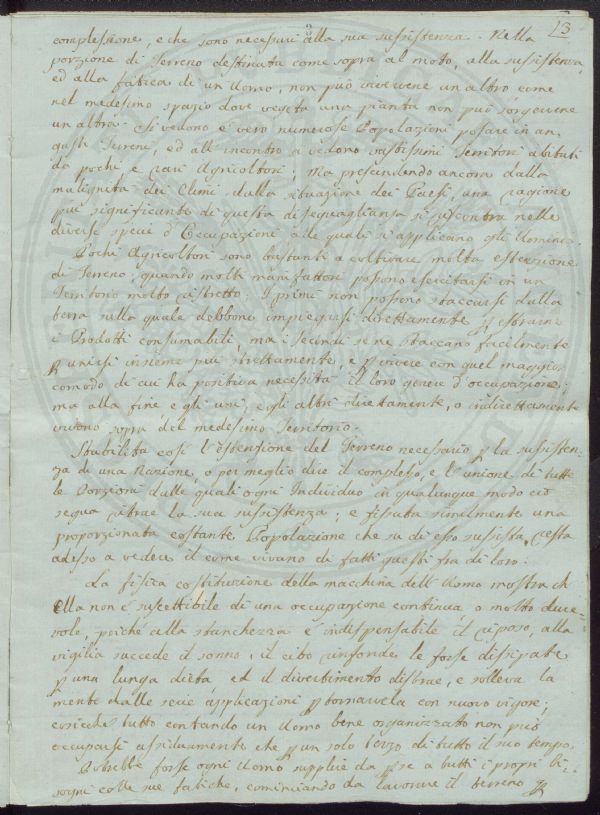 13
complessione, e che sono necessari alla sua sussistenza. Nella
porzione di Terreno destinata come sopra al moto, alla sussistenza,
ed alla fatica di un Uomo, non può vivervene un altro come
nel medesimo spazio dove vegeta una pianta non può sorgervene
un altra. Si vedono è vero numerose Popolazioni posare in an-
gusti Terreni, ed all' incontro si vedono vastissimi Territori abitati
da pochi e rari Agricoltori; Ma prescindendo ancora dalla
malignità dei Climi dalla situazione dei Paesi, una ragione
più significante di questa disequaglianza si riscontra nelle
diverse specie d'Occupazioni alle quali si applicano gli Uomini.
Pochi Agricoltori sono bastanti a coltivare molta estensione
di Terreno; quando molti manifattori possono esercitarsi in un
Territorio molto ristretto; I primi non possono staccarsi dalla
terra nella quale debbono impiegarsi direttamente p estrarne
i Prodotti consumabili, ma i secondi se ne staccano facilmente
p unirsi insieme più strettamente, e p vivere con quel maggior
comodo di cui ha positiva necessità il loro genere d'occupazione;
ma alla fine e gli uni, e gli altri direttamente, o indirettamente
vivono sopra del medesimo Territorio.
Stabilita così l'estensione del Terreno necessario p la sussisten-
za di una Nazione, o per meglio dire il complesso, e l'unione di tutte
le Porzioni dalle quali ogni Individuo in qualunque modo ciò
segua ritrae la sua sussistenza; e fissata similmente una
proporzionata costante Popolazione che su di esso sussista, resta
adesso a vedere il come vivano di fatti questi fra di loro.
La fisica costituzione della macchina dell' Uomo mostra ch
ella non è suscettibile di una occupazione continua o molto dure-
vole, poiché alla stanchezza è indispensabile il riposo, alla
vigilia succede il sonno, il cibo rinfonde le forse dissipate
p una lunga dieta ed il divertimento distrae, e solleva la
mente dalle serie applicazioni p tornarvela con nuovo vigore;
cosicche tutto contando un Uomo bene organizzato non può
occuparsi assiduamente che p un solo terzo di tutto il suo tempo.
Potrebbe forse ogni Uomo supplire da p se a tutti i propri bi-
sogni colle sue fatiche, cominciando da lavorare il terreno p